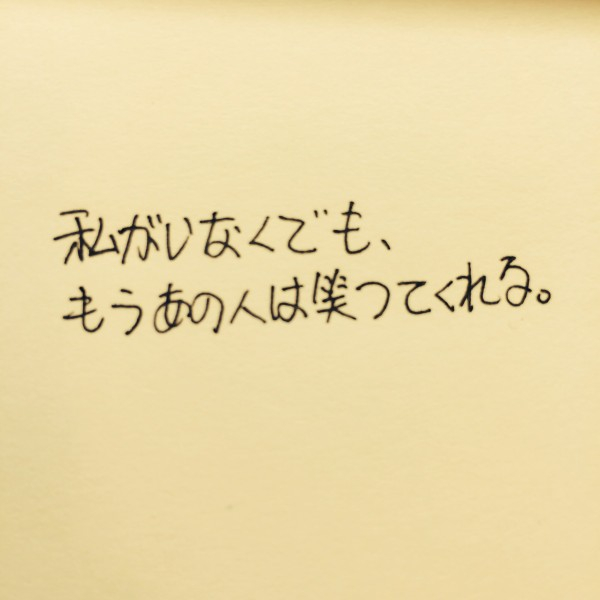 私がいなくでも、
もうあの人は笑ってくれる。